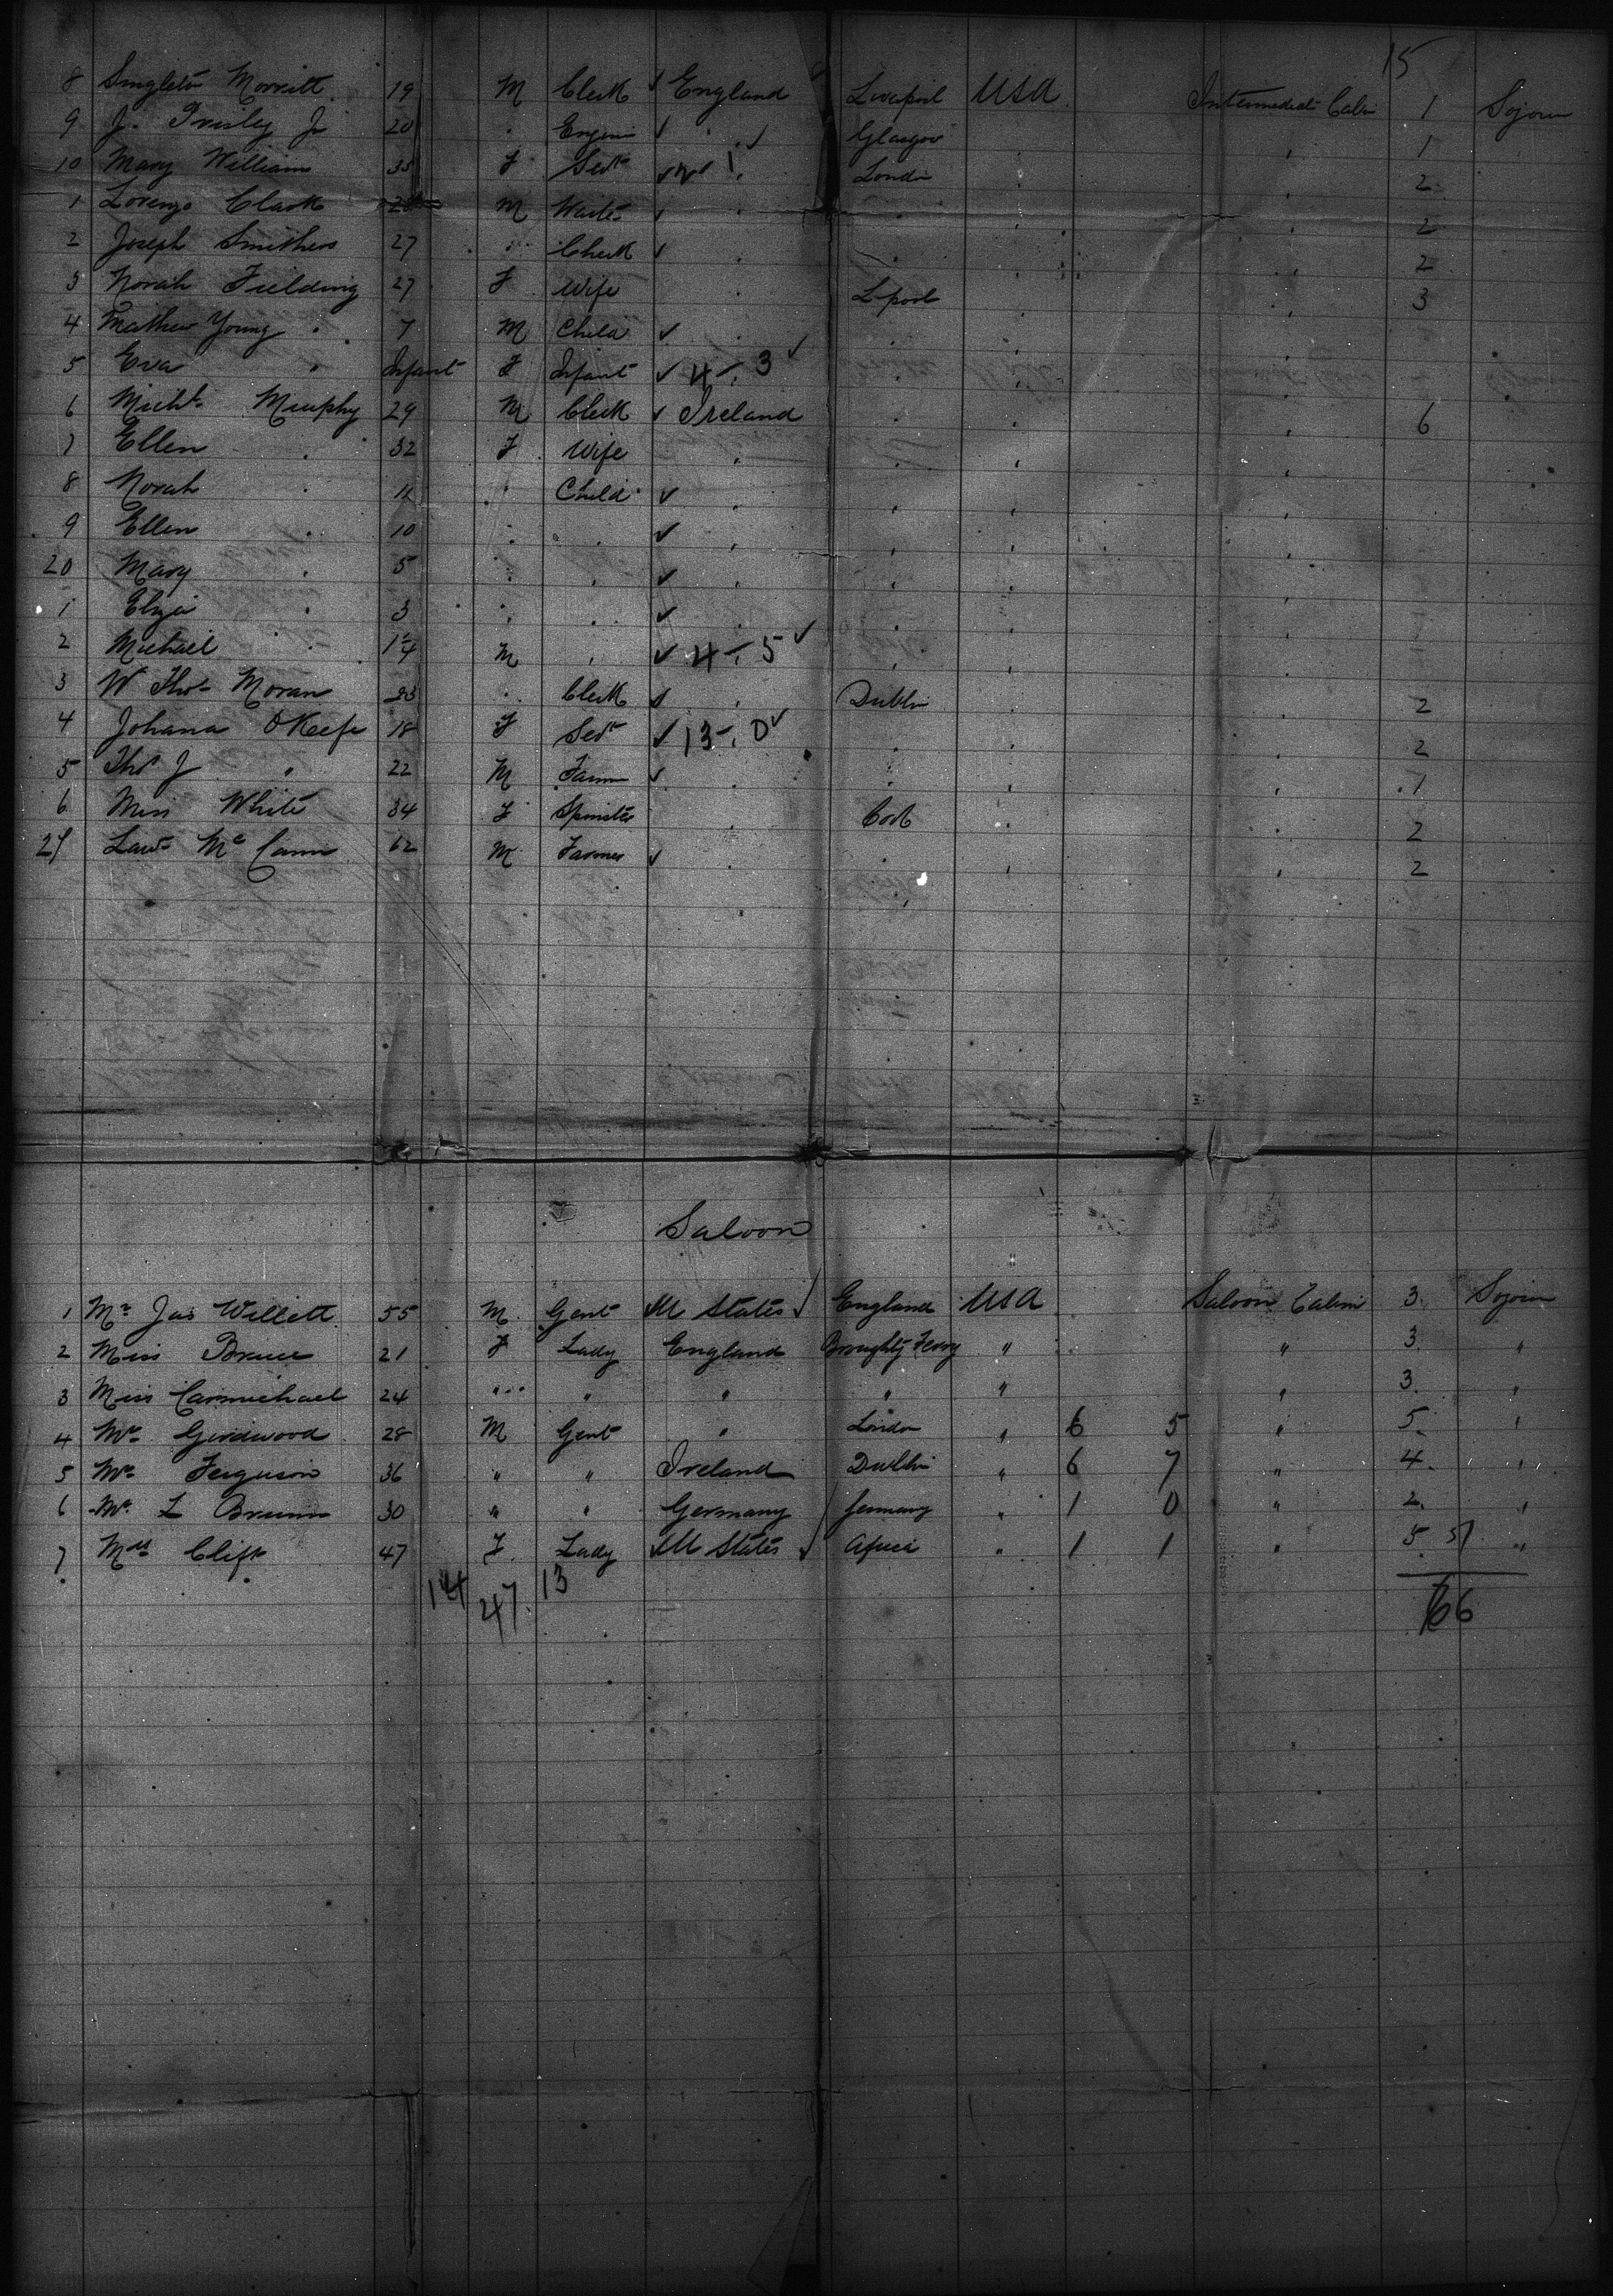 15
8 Singleton Morritt 19 M Clerk ✓ England Liverpool USA Intermediate Cabin 1 Sojourn
9 J. Jr 20 " Engin ✓ " ✓ Glasgow " " 1
10 Mary Williams 35 F Sevt ✓ 1 London " " 2
1 Lorenzo Clark M Waiter ✓ " " " " 2
2 Joseph Smithers 27 " Clerk ✓ " " " " 2
3 Norah Fielding 27 F Wife " Lpool " " 3
4 Mathew Young " 7 M Child ✓ " " " "
5 Eva " Infant F Infant ✓ 4 - 3 ✓ " " "
6 Michl Murphy 29 M Clerk ✓ Ireland " " " 6
7 Ellen " 32 F Wife " " " "
8 Norah " 11 " Child ✓ " " " "
9 Ellen " 10 " " ✓ " " " "
20 Mary " 5 " " ✓ " " " "
1 Eliza " 3 " " ✓ " " "
2 Michael " M " ✓ 4 - 5 ✓ " " "
3 W Thos Moran 23 " Clerk ✓ " Dublin " " 2
4 Johana OKeefe 18 F Sevt ✓ 13 - 0 ✓ " " " 2
5 Thos J " 22 M Farm ✓ " " " " 1
6 Miss White 34 F Spinster " Cork " " 2
27 Lawr McCann 62 M Farmer ✓ " " " 2
Saloon
1 Mr Jas Willett 55 M Gent U States England USA Saloon Cabin 3 Sojourn
2 Miss Bruce 21 F Lady England Broughty Ferry " " 3 "
3 Miss Carmichael 24 " " " " " " 3 "
4 Mr Girdwood 28 M Gent " London " 6 5 " 5 "
5 Mr Ferguson 36 " " Ireland Dublin " 6 7 " 4 "
6 Mr L Brunn 30 " " Germany Germany " 1 0 " 2 "
7 Mrs Clift 47 F Lady U States Africa " 1 1 " 5 57 "
14 47 13 66